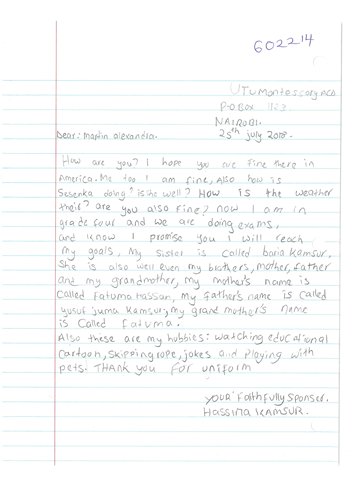 602214
UTU Montessory ACD
P.O BOX 1123
NAIROBI.
25th july 2018.
Dear: Martin alexandra.
How are you? I hope you are fine there in
America. Me too I am fine, Also how is
Sesenka doing? is she well? How is the weather
their? are you also fine? now I am in
grade four and we are doing exams,
and know I promise you I will reach
my goals, My sister is called baria Kamsur.
She is also well even my brothers, mother, Father
and my grandmother, my mother's name is
called Fatuma Hassan, my father's name is called
yusuf juma Kamsur, my grand mother's name
is Called Fatuma.
Also these are my hubbies: watching educational
Cartoon, skipping rope, jokes and playing with
pets. THANK you For uniform
YOUR Faithfully Sponser.
HASSINA KAMSUR.